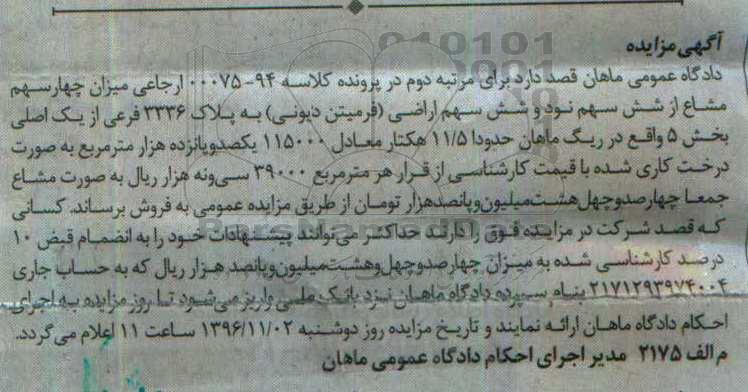 آگهی مزایده
دادگاه عمومی ماهان قصد دارد برای مرتبه دوم در پرونده کلاسه ۹۴-۰۰۰۷۵ ارجاعی میزان چهارسهم
مشاع از شش سهم نود و شش سهم اراضی (فرمیتن دیونی) به پلاک ۳۳۳۶ فرعی از یک اصلی
بخش ۵ واقع در ریگ ماهان حدودا ۱۱/۵ هکتار معادل ۱۱۵۰۰۰ یکصدوپانزده هزار مترمربع به صورت
درخت کاری شده با قیمت کارشناسی از قرار هر مترمربع ۳۹۰۰۰ سی‌ونه هزار ریال به صورت مشاع
جمعا چهارصدوچهل‌هشت‌میلیون‌وپانصدهزار تومان از طریق مزایده عمومی به فروش برساند. کسانی
که قصد شرکت در مزایده فوق را دارند حداکثر می‌توانند پیشنهادات خود را به انضمام قبض ۱۰
درصد کارشناسی شده به میزان چهارصدوچهل‌وهشت‌میلیون‌وپانصد هزار ریال که به حساب جاری
۲۱۷۱۲۹۳۹۷۴۰۰۴ بنام سپرده دادگاه ماهان نزد بانک ملی واریز می‌شود تا روز مزایده به اجرای
احکام دادگاه ماهان ارائه نمایند و تاریخ مزایده روز دوشنبه ۱۳۹۶/۱۱/۰۲ ساعت ۱۱ اعلام می گردد.
م الف ۲۱۷۵ مدیر اجرای احکام دادگاه عمومی ماهان